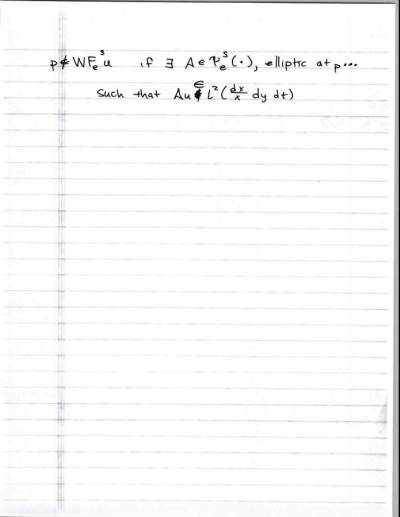 p ∉ WFₑˢu if ∃ A ∈ Ψₑˢ(·), elliptic at p...
such that Au ∈ L²(dx/x dy dt)